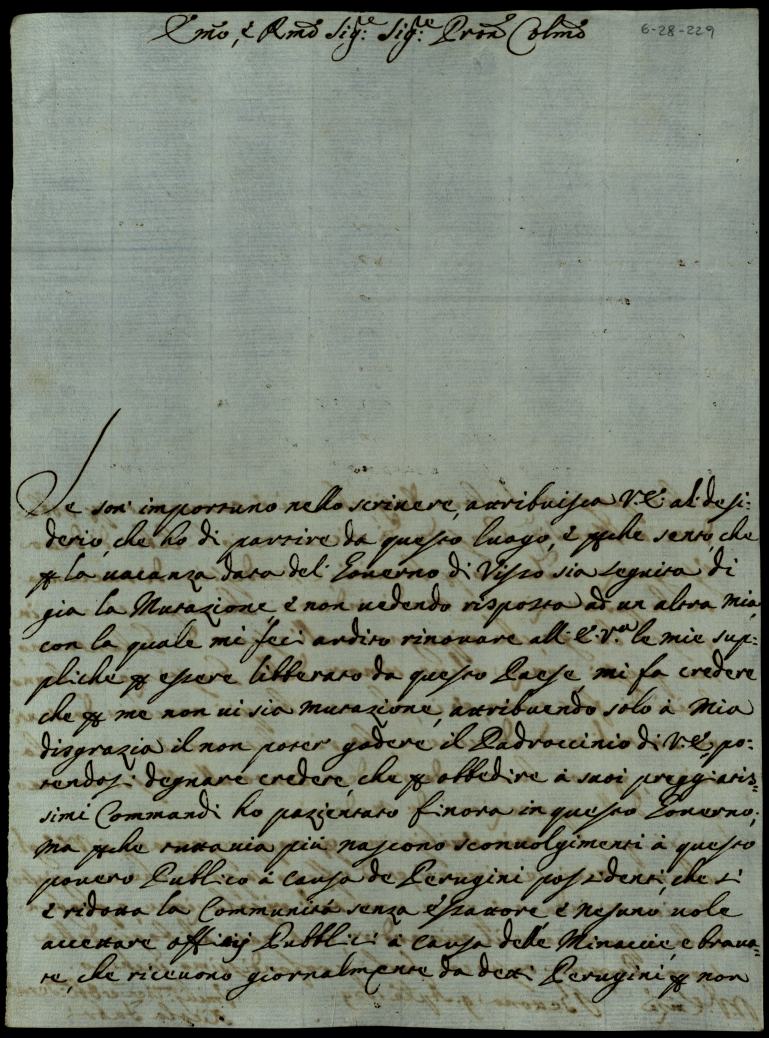 6-28-229
Emo, è Rmo Sig:re Sig:re Pron Colmo
Se son' importuno nello scrivere, attribuisca V.E. al desi:
derio, che ho di partire da questo luogo, è pche sento, che
p la vacanza data del Governo di Visso sia seguita di
gia la Mutazione è non vedendo risposta ad un altra mia,
con la quale mi feci ardito rinovare all' E.V.ra le mie sup:
pliche p essere libberato da questo Paese, mi fa credere
che p me non vi sia mutazione, attribuendo solo à mia
disgrazia il non poter' godere il Padroccinio di V.E., po:
tendosi degnare credere, che p obbedire à suoi preggiatis=
simi Commandi ho pazientato finora in questo Governo;
ma pche tuttavia più nascono sconvolgimenti à questo
povero Publico à causa de Perugini possidenti, che si
è ridotta la Communità senza esattore è nesuno vole
accettare offitij Pubblici à causa delle Minaccie, e brava=
te, che ricevono giornalmente da detti Perugini, p non